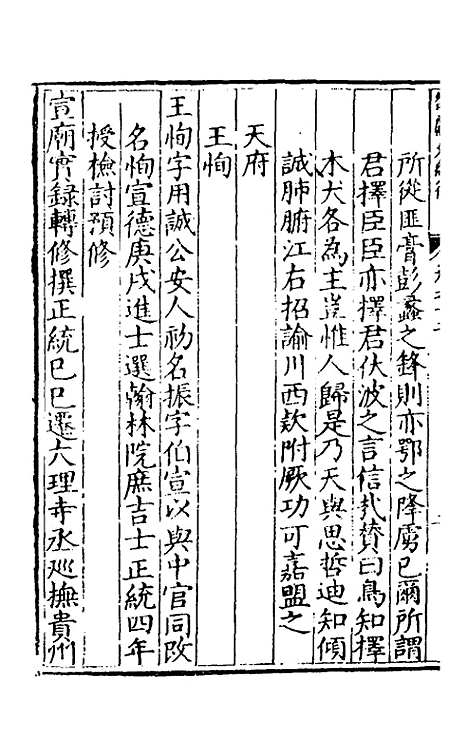 所從匪膏彭蠡之鋒則亦鄂之降虜已爾所謂
君擇臣臣亦擇君伏波之言信哉贊曰鳥知擇
木犬各為主豈惟人歸是乃天與思哲迪知傾
誠肺腑江右招諭川西欵附厥功可嘉盟之
天府
王恂
王恂字用誠公安人初名振字伯宣以與中官同改
名恂宣德庚戌進士選翰林院庶吉士正統四年
授檢討預修
宣廟實録轉修撰正統己巳遷大理寺丞巡撫貴州